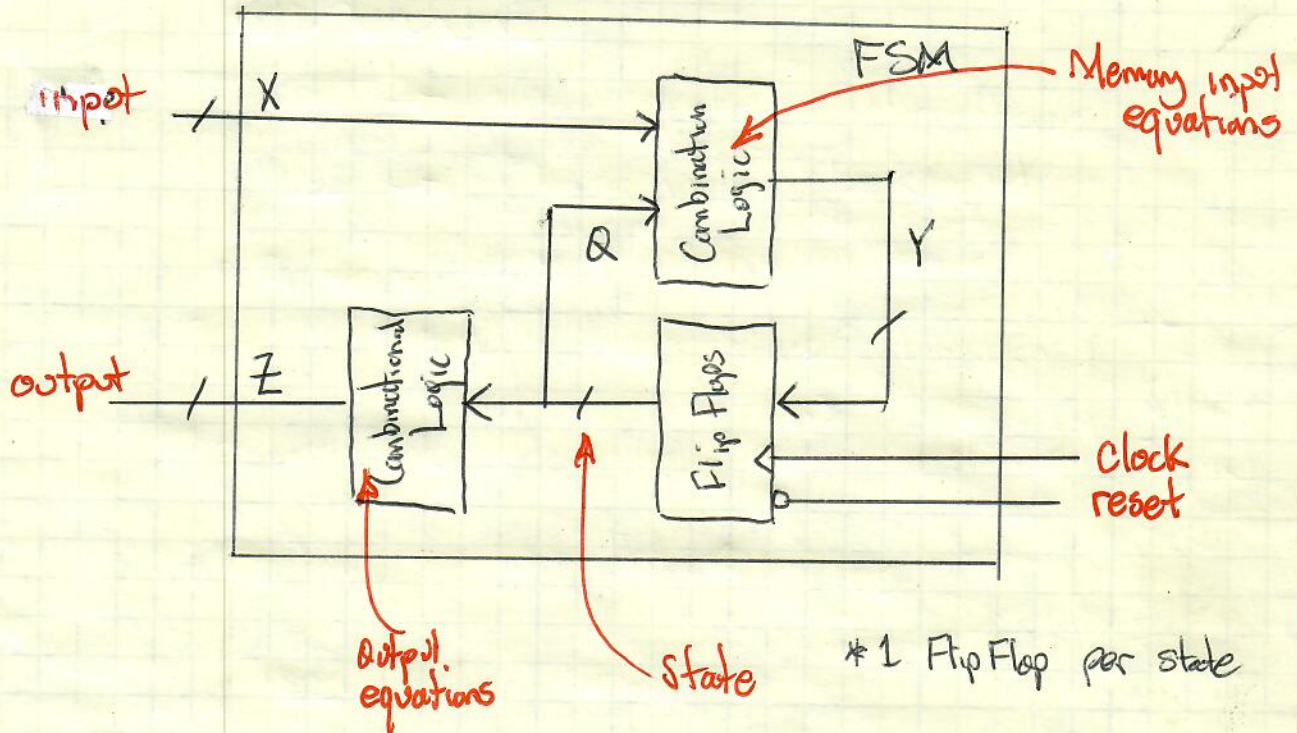 FSM
Memory input
equations
input
X
Combination
Logic
Q
Y
output
Z
Combinational
Logic
Flip Flops
Clock
reset
Output
equations
State
* 1 Flip Flop per state